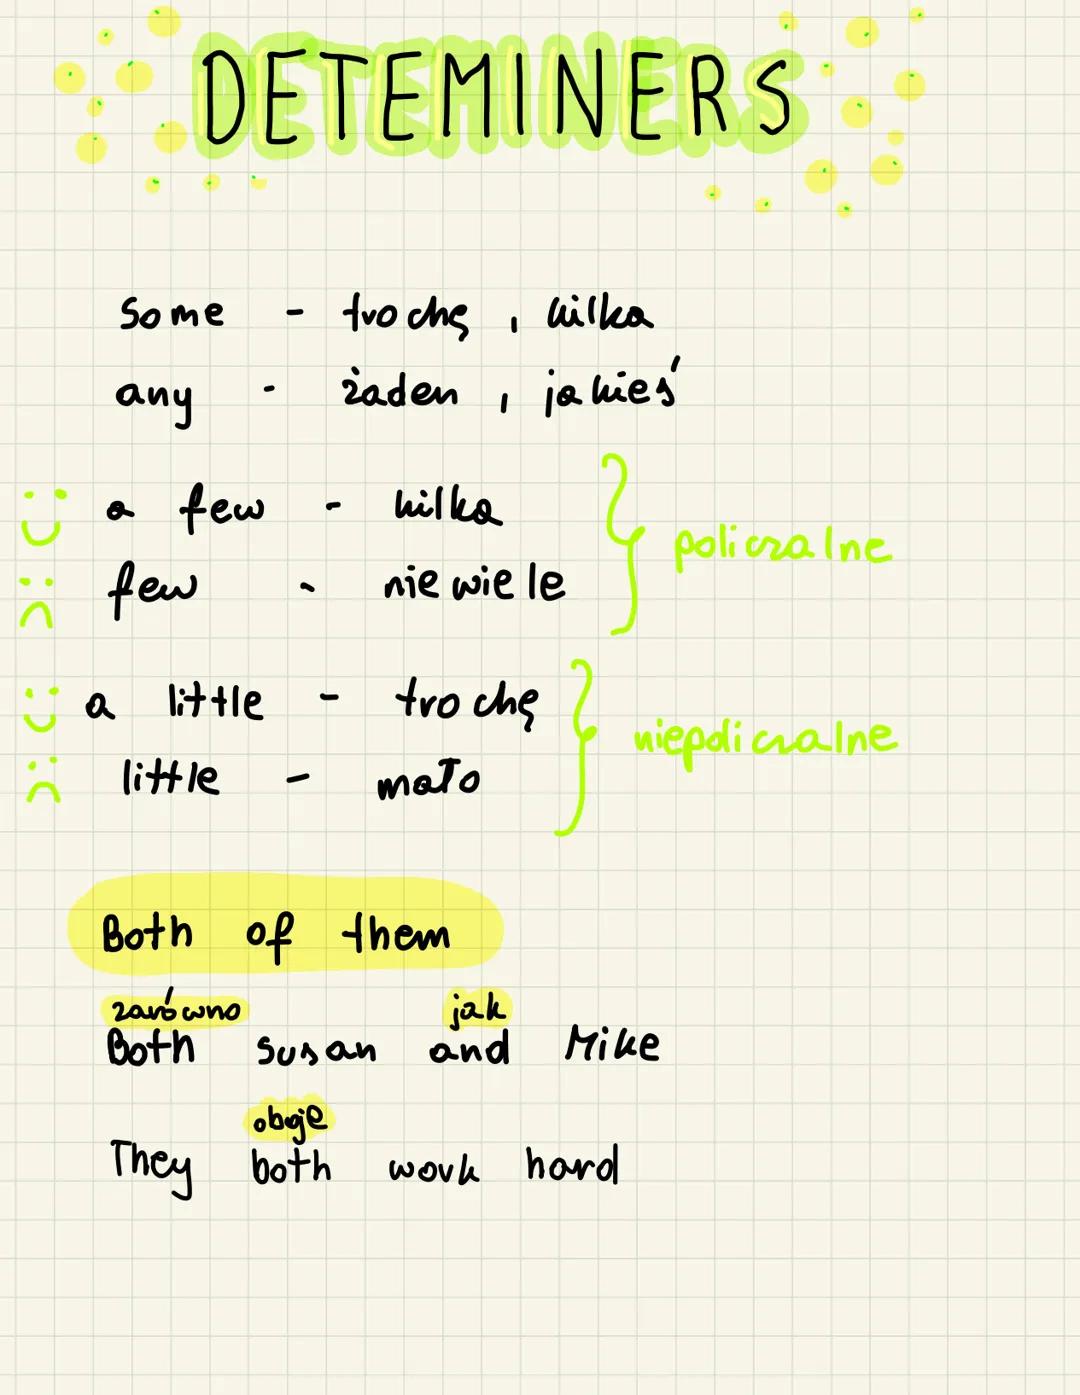 DETEMINERS
some - trochę, kilka
any - żaden, jakieś
a few - kilka
few - niewiele
policzalne
a little - trochę
little - mało
niepoliczalne
Both of them
zarówno jak
Both Susan and Mike
oboje
They both work hard